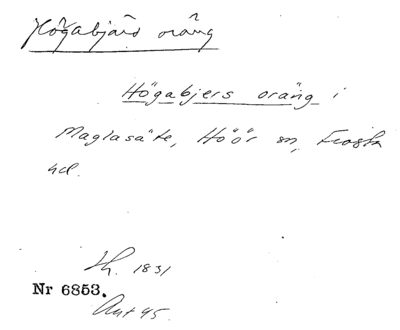 Högabjärs oräng
Högabjers oräng i
Maglasäte, Höör sn, Frosta
hd.
Lh. 1831
Nr 6853.
Ant 45.